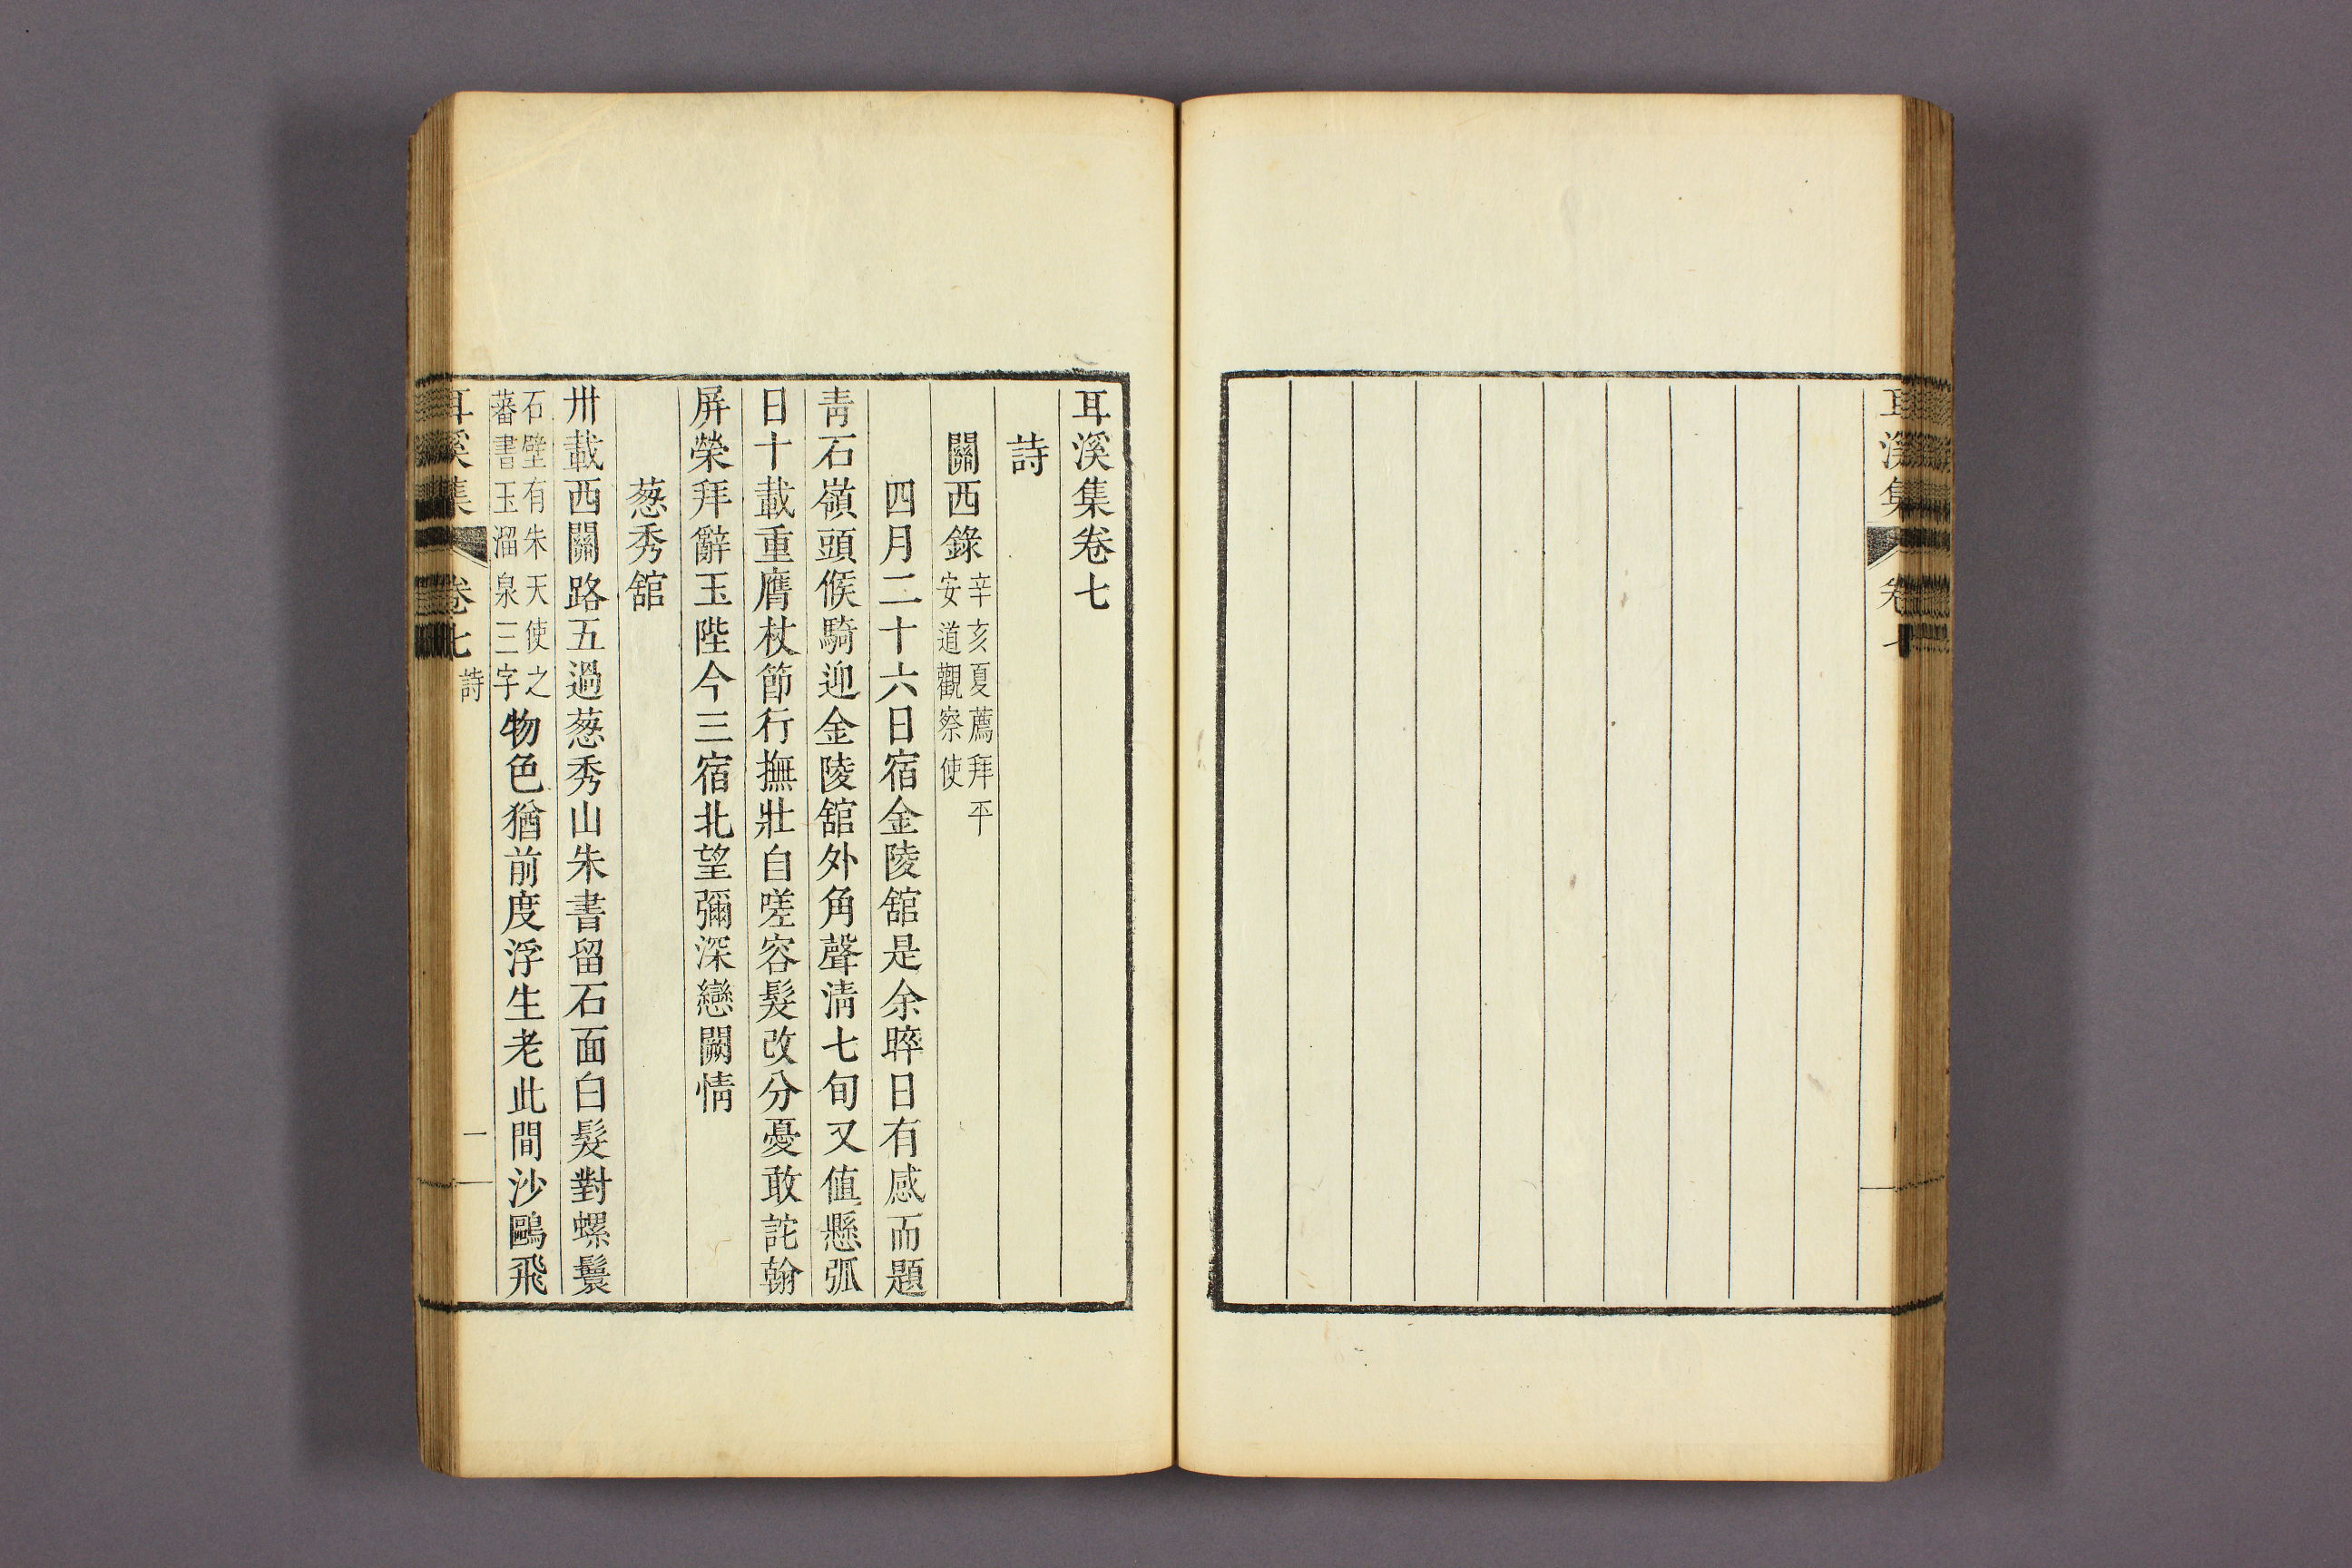 耳溪集
卷七
耳溪集卷七
詩
關西錄 辛亥夏薦拜平
安道觀察使
四月二十六日宿金陵舘是余晬日有感而題
靑石嶺頭候騎迎金陵舘外角聲淸七旬又値懸弧
日十載重膺杖節行撫壯自嗟容髮改分憂敢詫翰
屏榮拜辭玉陛今三宿北望彌深戀闕情
葱秀舘
卅載西關路五過葱秀山朱書留石面白髮對螺鬟
石壁有朱天使之
蕃書玉溜泉三字 物色猶前度浮生老此間沙鷗飛
耳溪集
卷七
詩
一